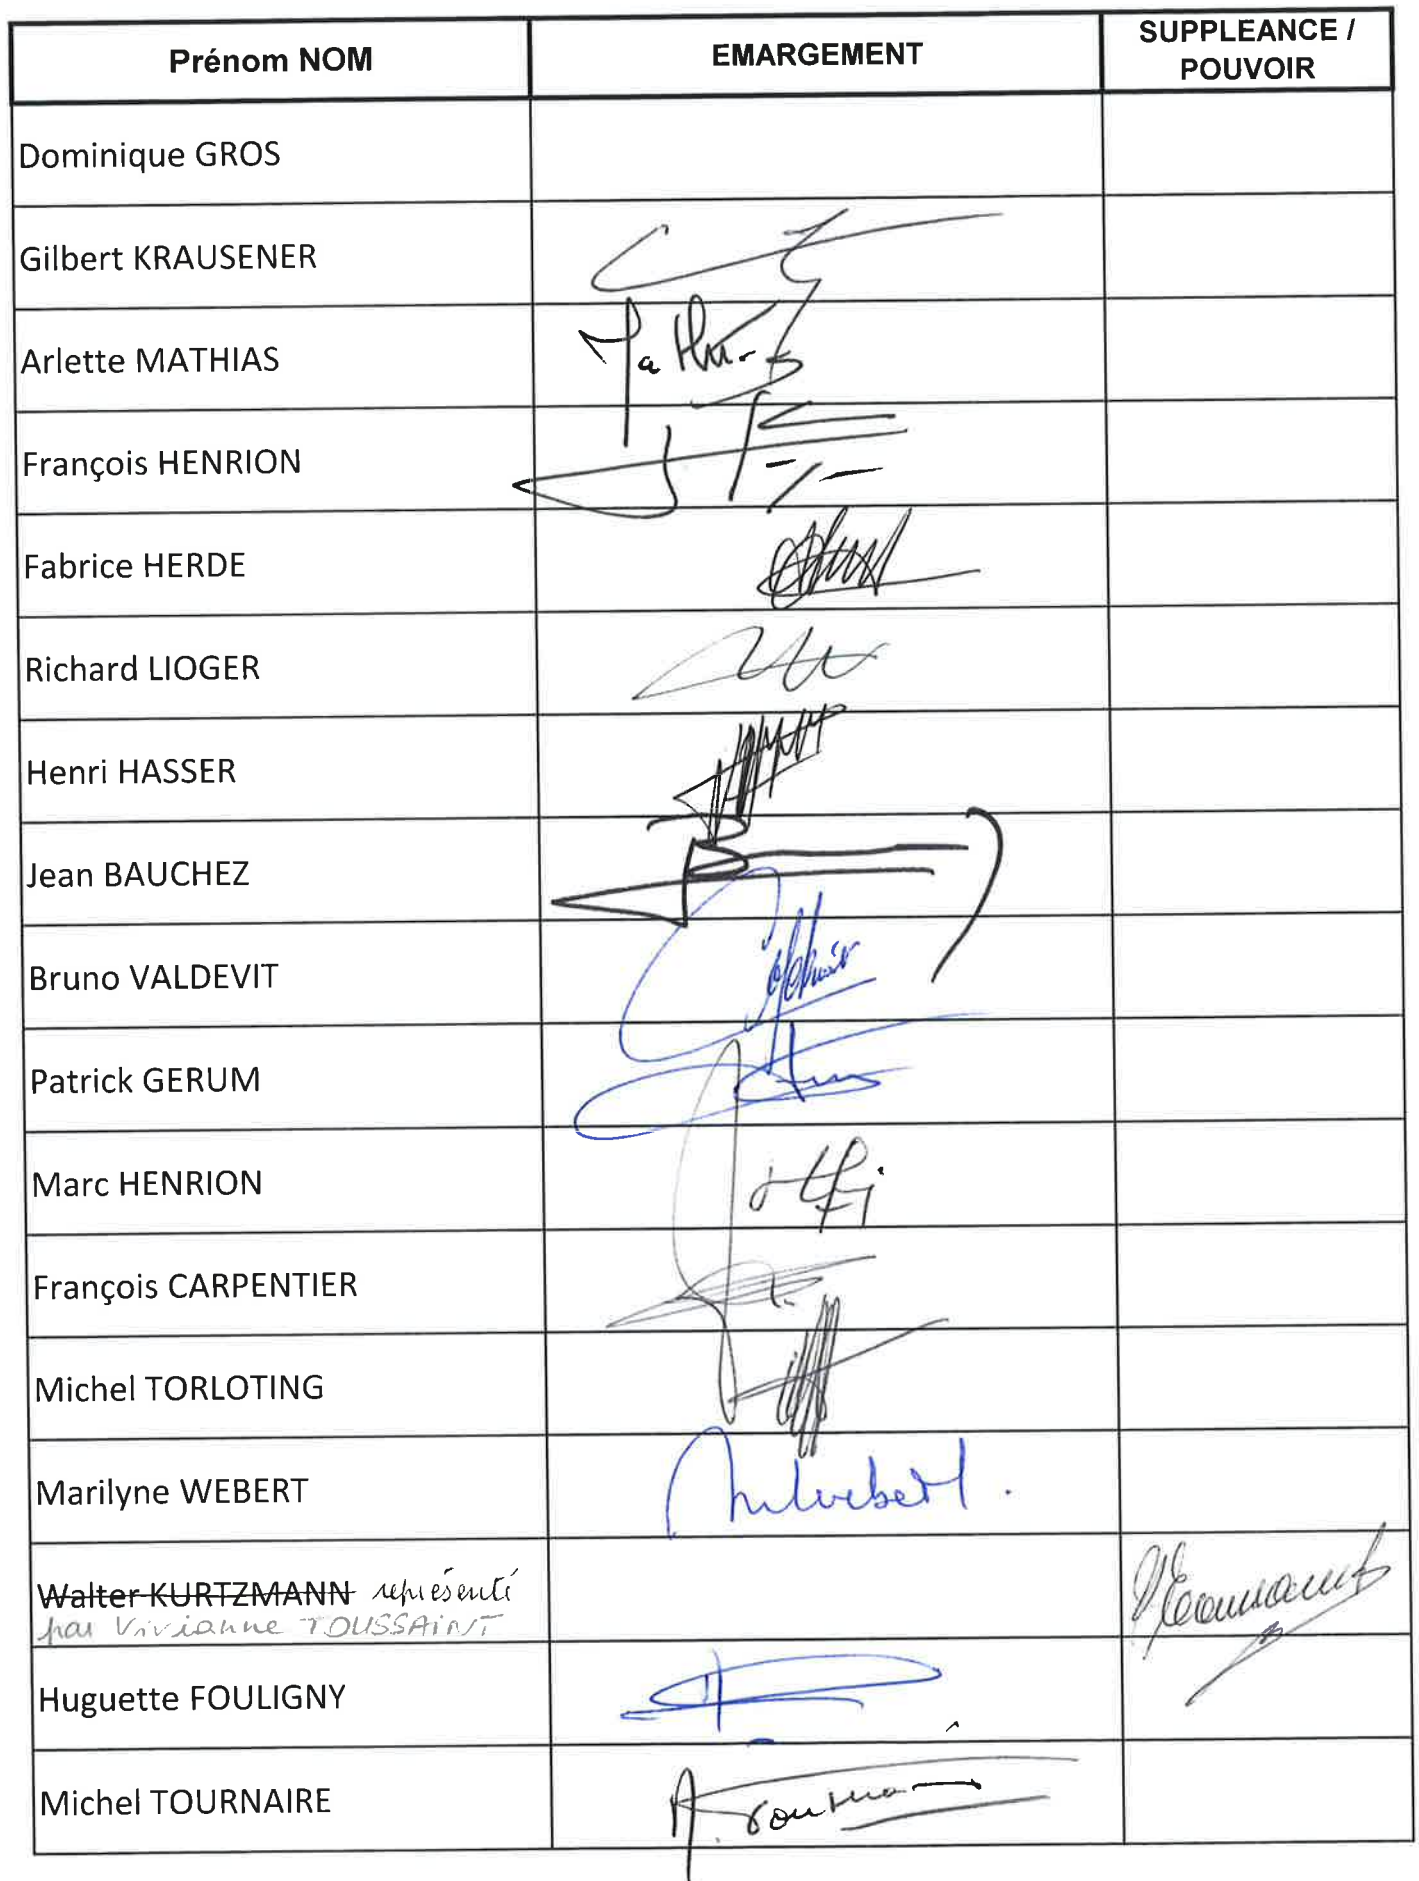 Prénom NOM
EMARGEMENT
SUPPLEANCE /
POUVOIR
Dominique GROS
Gilbert KRAUSENER
Arlette MATHIAS
François HENRION
Fabrice HERDE
Richard LIOGER
Henri HASSER
Jean BAUCHEZ
Bruno VALDEVIT
Patrick GERUM
Marc HENRION
François CARPENTIER
Michel TORLOTING
Marilyne WEBERT
Walter KURTZMANN représenté
par Vivianne TOUSSAINT
Huguette FOULIGNY
Michel TOURNAIRE